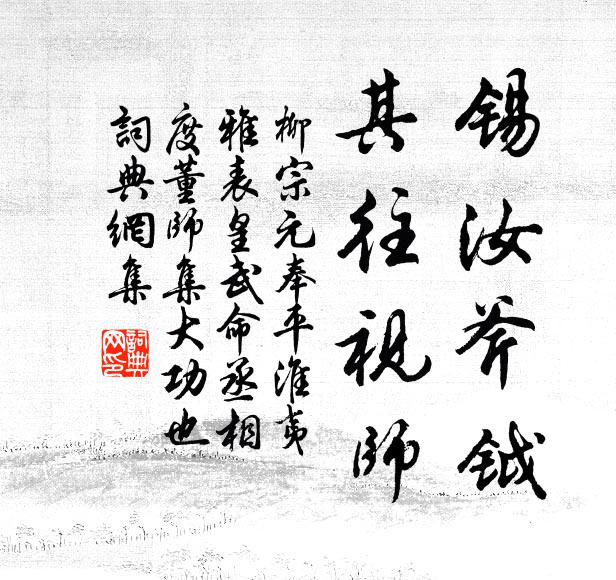 錫汝斧鉞
其往視師
柳宗元奉平淮夷
雅表皇武命丞相
度董師集大功也
詞典網集
詞典網印